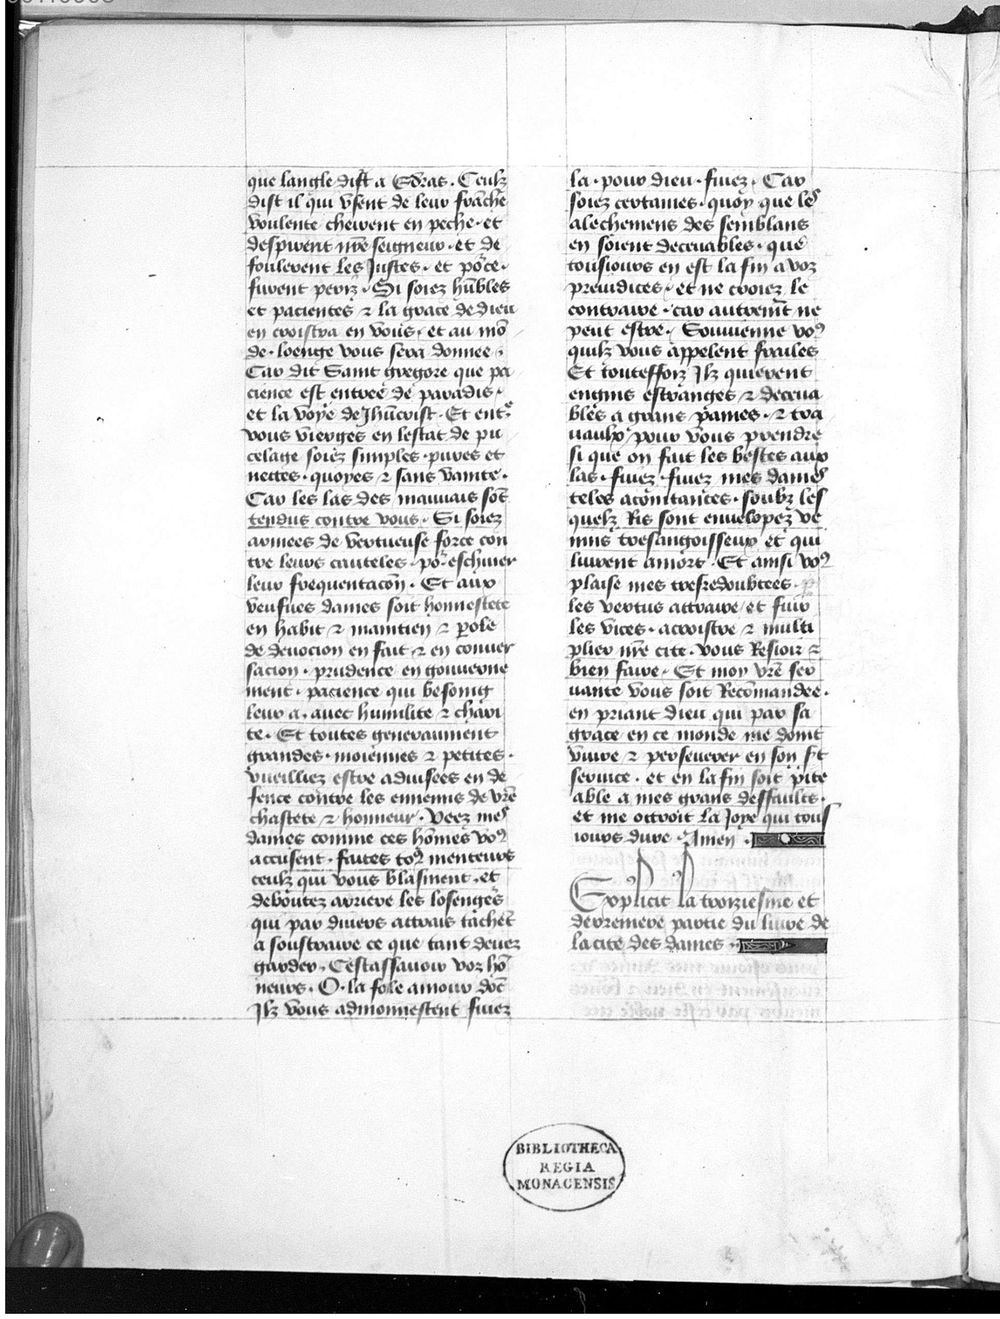 que langle dist a Esdras. Ceulz
dist il qui vsent de leur frãche
voulente cheirent en peche. et
despirent nr̃e seigneur. et de
foulerent les Justes. et põ ce.
furent periz. Si soiez hũbles
et pacientes ⁊ la grace de dieu
en croistra en vous. et au mõ
de. loenge vous sera donnee.
Car dit Saint gregore que pa
cience est entree de paradis.
et la voye de Jhũcrist. Et entͬ
vous vierges en lestat de pu
celage soiez simples. pures et
nettes. quoyes ⁊ sans vanite.
Car les las des mauuais sõt
tendus contre vous. Si soiez
armees de vertueuse force con
tre leurs cauteles. põ eschiuer
leur frequentacõn. Et aux
veufues dames soit honnestete
en habit ⁊ maintien ⁊ ꝑole
de deuocion en fait ⁊ en conuer
sacion. prudence en gouuerne
ment. pacience qui besoing
leur a. auec humilite ⁊ chari
te. Et toutes generaument
grandes. moiennes ⁊ petites.
vueilliez estre aduisees en de
fence contre les ennemis de vr̃e
chastete ⁊ honneur. Veez mes
dames comme ces hõmes voꝯ
accusent. faites toꝯ menteurs
ceulz qui vous blasment. et
deboutez arriere les losenges
qui par diuers attrais tachẽt
a soustraire ce que tant deuez
garder. Cestassauoir voz hõ
neurs. O. la fole amour dõt
Ilz vous admonnestent fuiez
la. pour dieu. fuiez. Car
soiez certaines. quoy que les
alechemens des semblans
en soient deceuables. que
tousiours en est la fin a voz
preiudices. et ne croiez le
contraire. car autremẽt ne
peut estre. Souuienne voꝯ
quilz vous appelent frailes
Et touteffoiz Ilz quierent
engins estranges ⁊ deceua
bles a grans paines. ⁊ tra
uaulx pour vous prendre
si que on fait les bestes aux
las. fuiez. fuiez mes dames
teles acõintances. soubz les
quelz Ris sont enuelopez ve
nins tresangoisseux et qui
liurent amort. Et ainsi voꝯ
plaise mes tresredoubtees. ꝑ
les vertus attraire et fuir
les vices. acroistre ⁊ multi
plier nr̃e cite. vous Resioir ⁊
bien faire. Et moy vr̃e ser
uante vous soit Recõmandee.
en priant dieu qui par sa
grace en ce monde me doint
viure ⁊ perseuerer en son s̃t
seruice. et en la fin soit pite
able a mes grans deffaults.
et me ottroit la Joye qui tous
iours dure. Amen.
Explicit la troiziesme et
derreniere partie du liure de
la cite des dames.
BIBLIOTHECA
REGIA
MONACENSIS